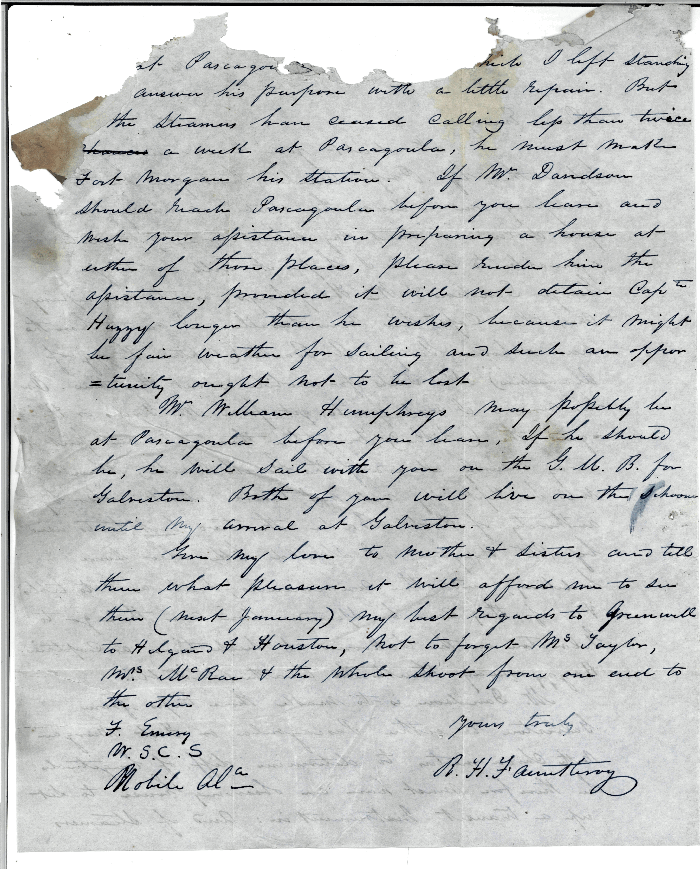 at Pascagou which I left standing
answer his purpose with a little repair. But
the Steamers have ceased calling less than twice
a week at Pascagoula, he must make
Fort Morgan his station. If Mr. Davidson
should reach Pascagoula before you leave and
wish your assistance in preparing a house at
either of those places, please render him the
assistance, provided it will not detain Captn
Huzzy longer than he wishes, because it might
be fair weather for sailing and such an oppor
=tunity ought not to be lost
Mr. William Humphreys may possibly be
at Pascagoula before you leave, If he should
be, he will sail with you on the G. M. B. for
Galveston. Both of you will live on the Schoon
until my arrival at Galveston.
Give my love to Mother & Sisters and tell
them what pleasure it will afford me to see
them (next January) my best regards to Greenwell
to Hilgard & Houston, not to forget Ms Taylor,
Mrs McRae & the whole shoot from one end to
the other
yours truly
F. Emery
W. S. C. S
R. H. Fauntleroy
Mobile Ala